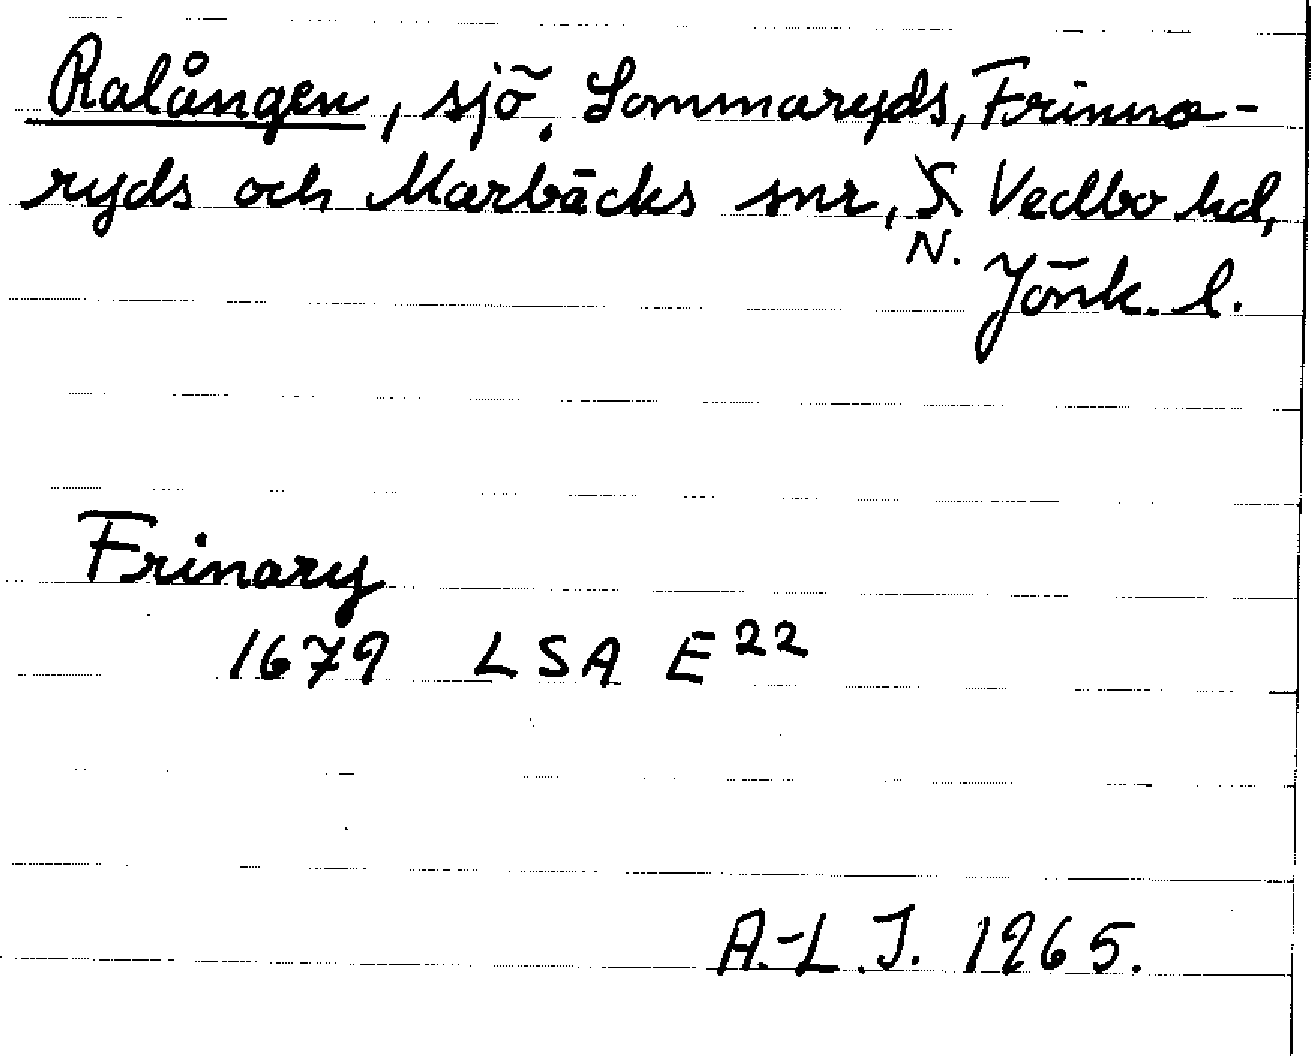 Ralången, sjö. Sommaryds, Frinna-
ryds och Marbäcks snr, S. Vedbo hd,
N.
Jönk. l.
Frinary
1679 LSA E22
A.-L.J. 1965.